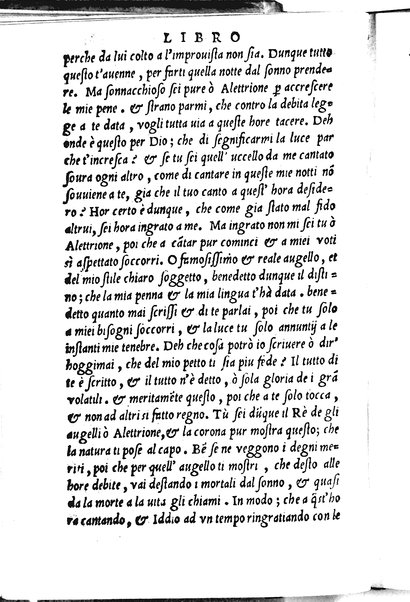 LIBRO
perche da lui colto a l'improuista non sia. Dunque tutto
questo t'auenne, per farti quella notte dal sonno prende-
re. Ma sonnacchioso sei pure ò Alettrione ꝑ accrescere
le mie pene. & strano parmi, che contro la debita leg-
ge a te data, vogli tutta uia a queste hore tacere. Deh
onde è questo per Dio; che di segnificarmi la luce par
che t'incresca? & se tu sei quell'uccello da me cantato
soura ogni altro, come di cantare in queste mie notti nõ
souuiene a te, gia che il tuo canto a quest'hora deside-
ro? Hor certo è dunque, che come gia stato mal fido
altrui, sei hora ingrato a me. Ma ingrato non mi sei tu ò
Alettrione, poi che a cãtar pur cominci & a miei voti
sì aspettato soccorri. O famosissimo & reale augello, et
del mio stile chiaro soggetto, benedetto dunque il disti-
no; che la mia penna & la mia lingua t'hà data. bene-
detto quanto mai scrissi & di te parlai, poi che tu solo
a miei bisogni soccorri, & la luce tu solo annuntij a le
instanti mie tenebre. Deh che cosa potrò io scriuere ò dir'
hoggimai, che del mio petto ti sia piu fede? Il tutto di
te è scritto, & il tutto n'è detto, ò sola gloria de i grã
volatili. & meritamẽte questo, poi che a te solo tocca,
& non ad altri si fatto regno. Tu sei dũque il Rè de gli
augelli ò Alettrione, & la corona pur mostra questo; che
la natura ti pose al capo. Bẽ se ne veggono i degni me-
riti, poi che per quell'augello ti mostri, che desto alle
hore debite, vai destando i mortali dal sonno, & quasi
da la morte a la uita gli chiami. In modo; che a q̃st'ho
ra cantando, & Iddio ad vn tempo ringratiando con le